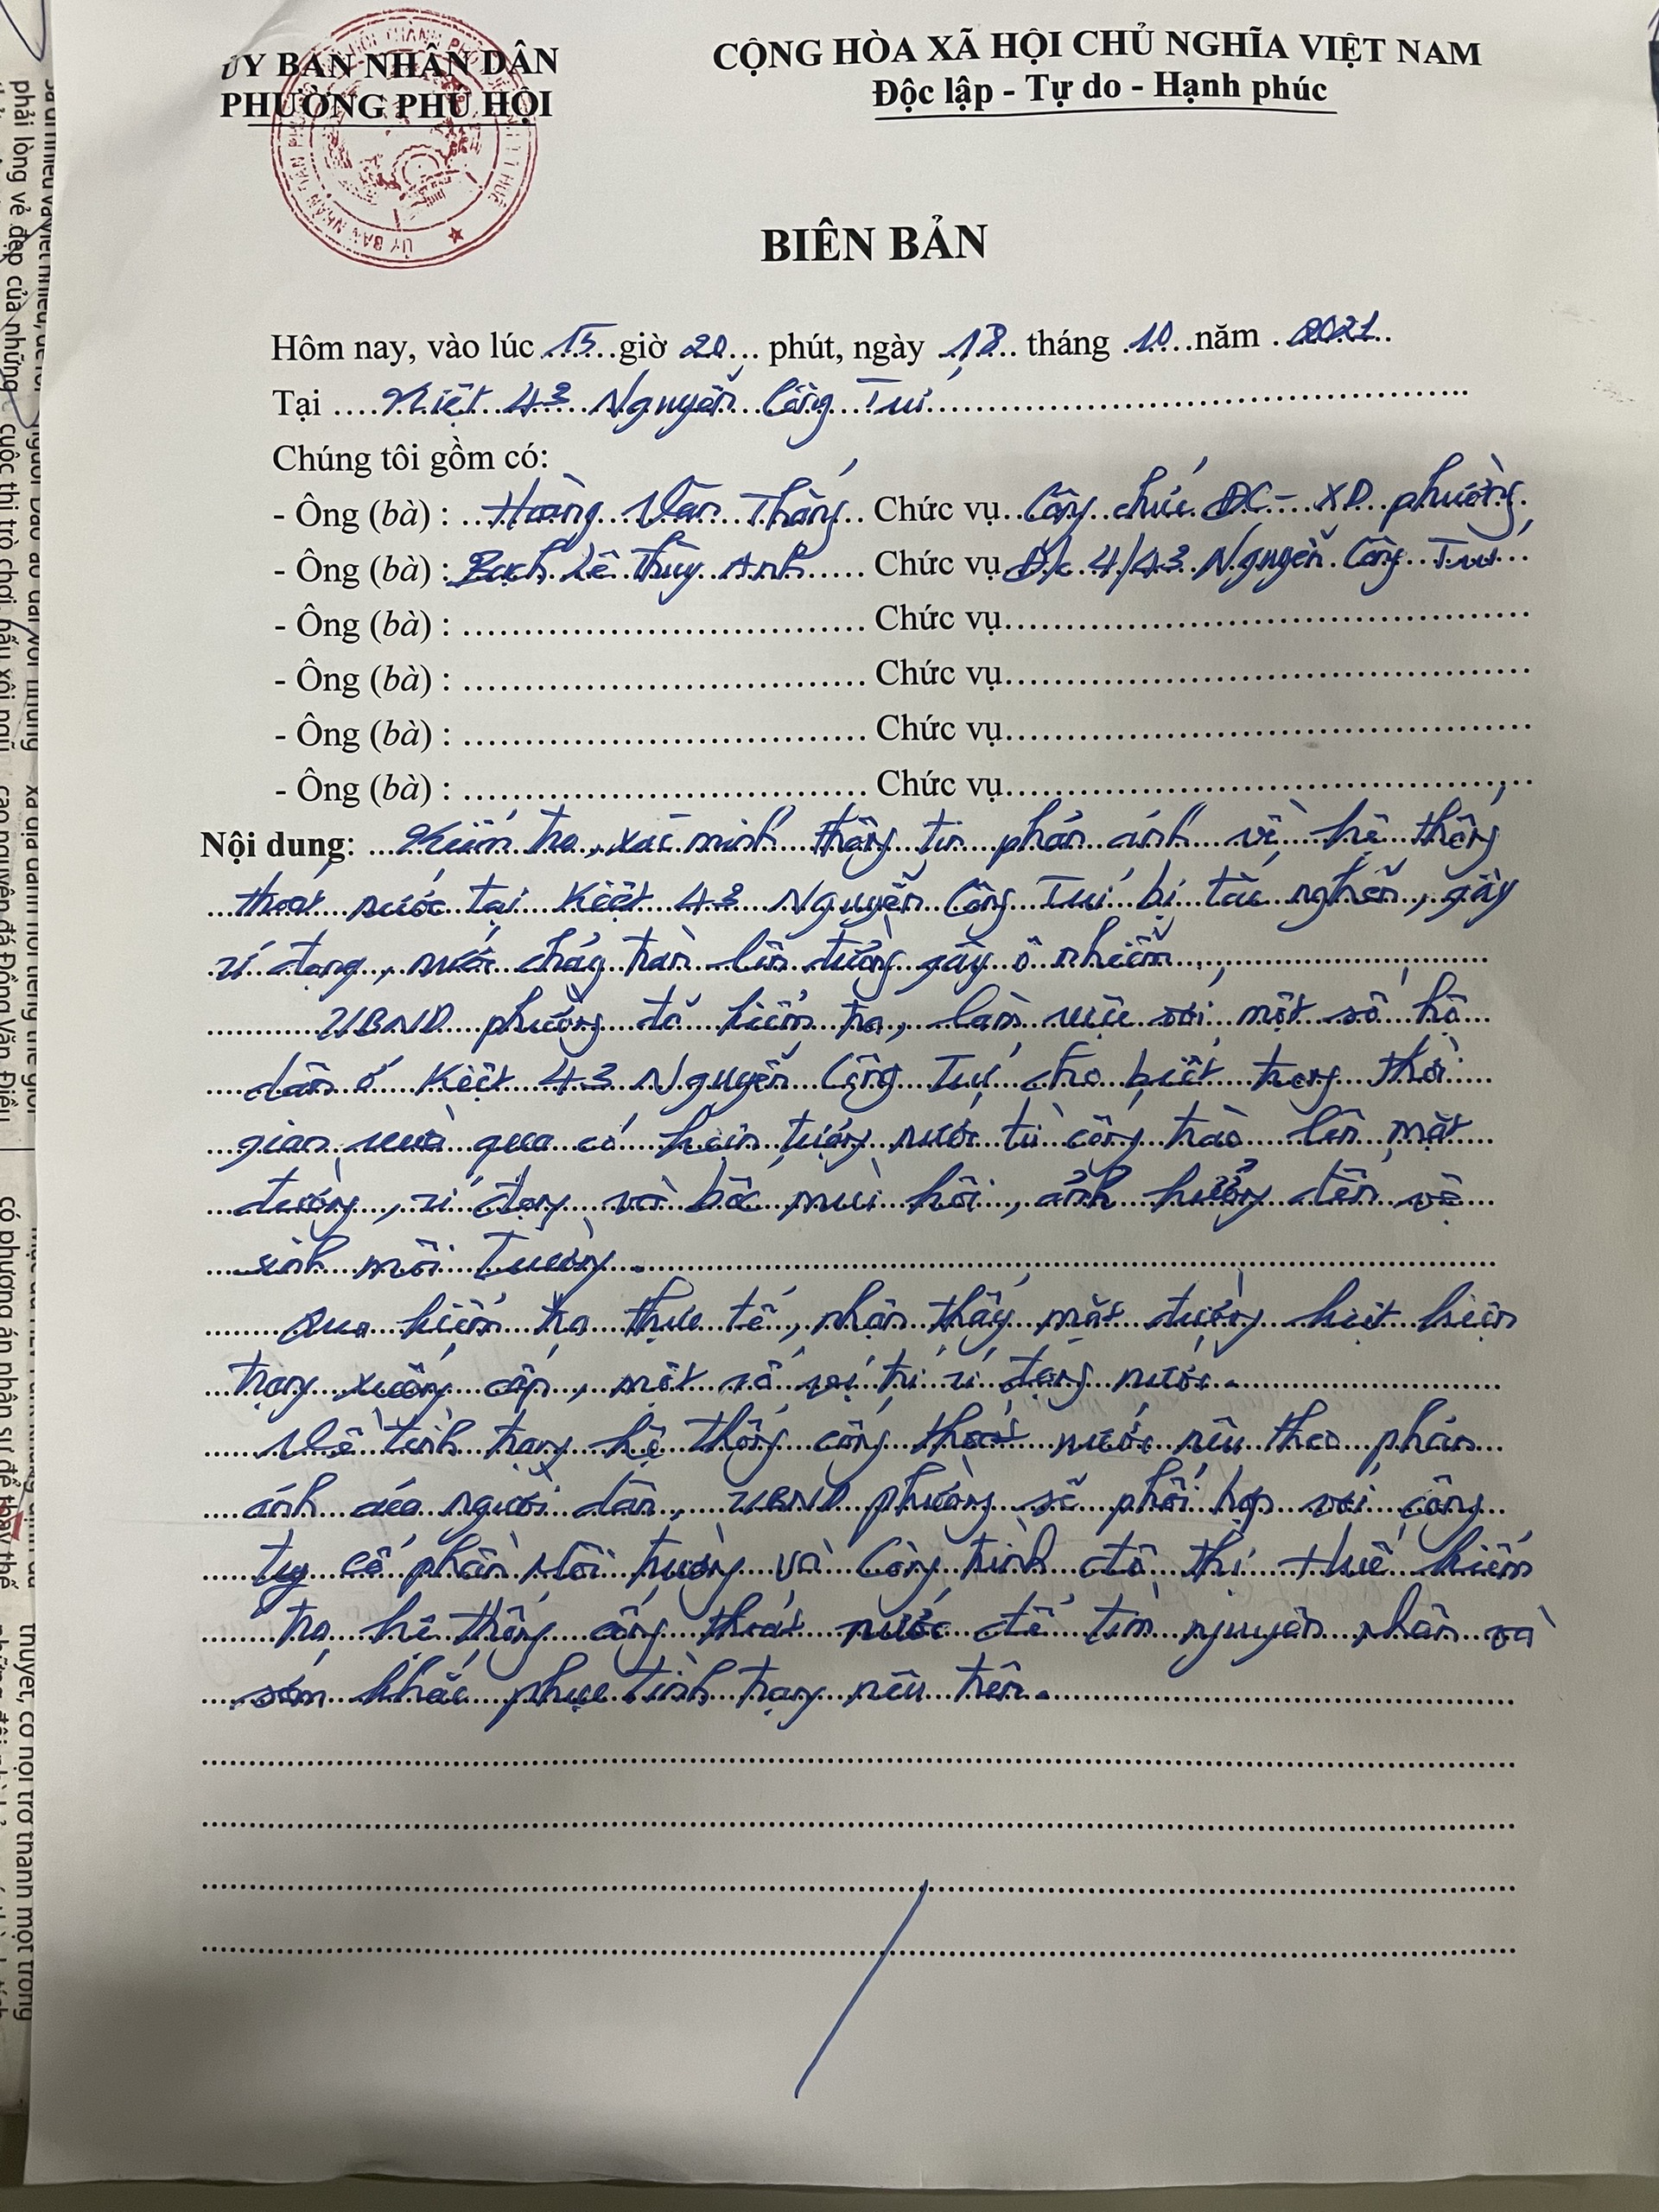 ỦY BAN NHÂN DÂN
PHƯỜNG PHÚ HỘI
CỘNG HÒA XÃ HỘI CHỦ NGHĨA VIỆT NAM
Độc lập - Tự do - Hạnh phúc
BIÊN BẢN
Hôm nay, vào lúc 15 giờ 20 phút, ngày 18 tháng 10 năm 2021
Tại Kiệt 43 Nguyễn Công Trứ
Chúng tôi gồm có:
- Ông (bà) : Hoàng Văn Thắng Chức vụ Công chức ĐC - XD phường
- Ông (bà) : Bạch Lê Thùy Anh Chức vụ Đ/c 4/43 Nguyễn Công Trứ
- Ông (bà) : Chức vụ
- Ông (bà) : Chức vụ
- Ông (bà) : Chức vụ
- Ông (bà) : Chức vụ
Nội dung: Kiểm tra, xác minh thông tin phản ánh về hệ thống
thoát nước tại Kiệt 43 Nguyễn Công Trứ bị tắc nghẽn, gây
ứ đọng, nước chảy tràn lên đường gây ô nhiễm
UBND phường đã kiểm tra, làm việc với một số hộ
dân ở Kiệt 43 Nguyễn Công Trứ cho biết trong thời
gian vừa qua có hiện tượng nước từ cống trào lên mặt
đường, ứ đọng và bốc mùi hôi, ảnh hưởng đến vệ
sinh môi trường.
Qua kiểm tra thực tế, nhận thấy mặt đường kiệt hiện
trạng xuống cấp, một số vị trí ứ đọng nước.
Về tình trạng hệ thống cống thoát nước nêu theo phản
ánh của người dân, UBND phường sẽ phối hợp với công
ty cổ phần Môi trường và Công trình đô thị Huế kiểm
tra hệ thống cống thoát nước để tìm nguyên nhân và
sớm khắc phục tình trạng nêu trên.